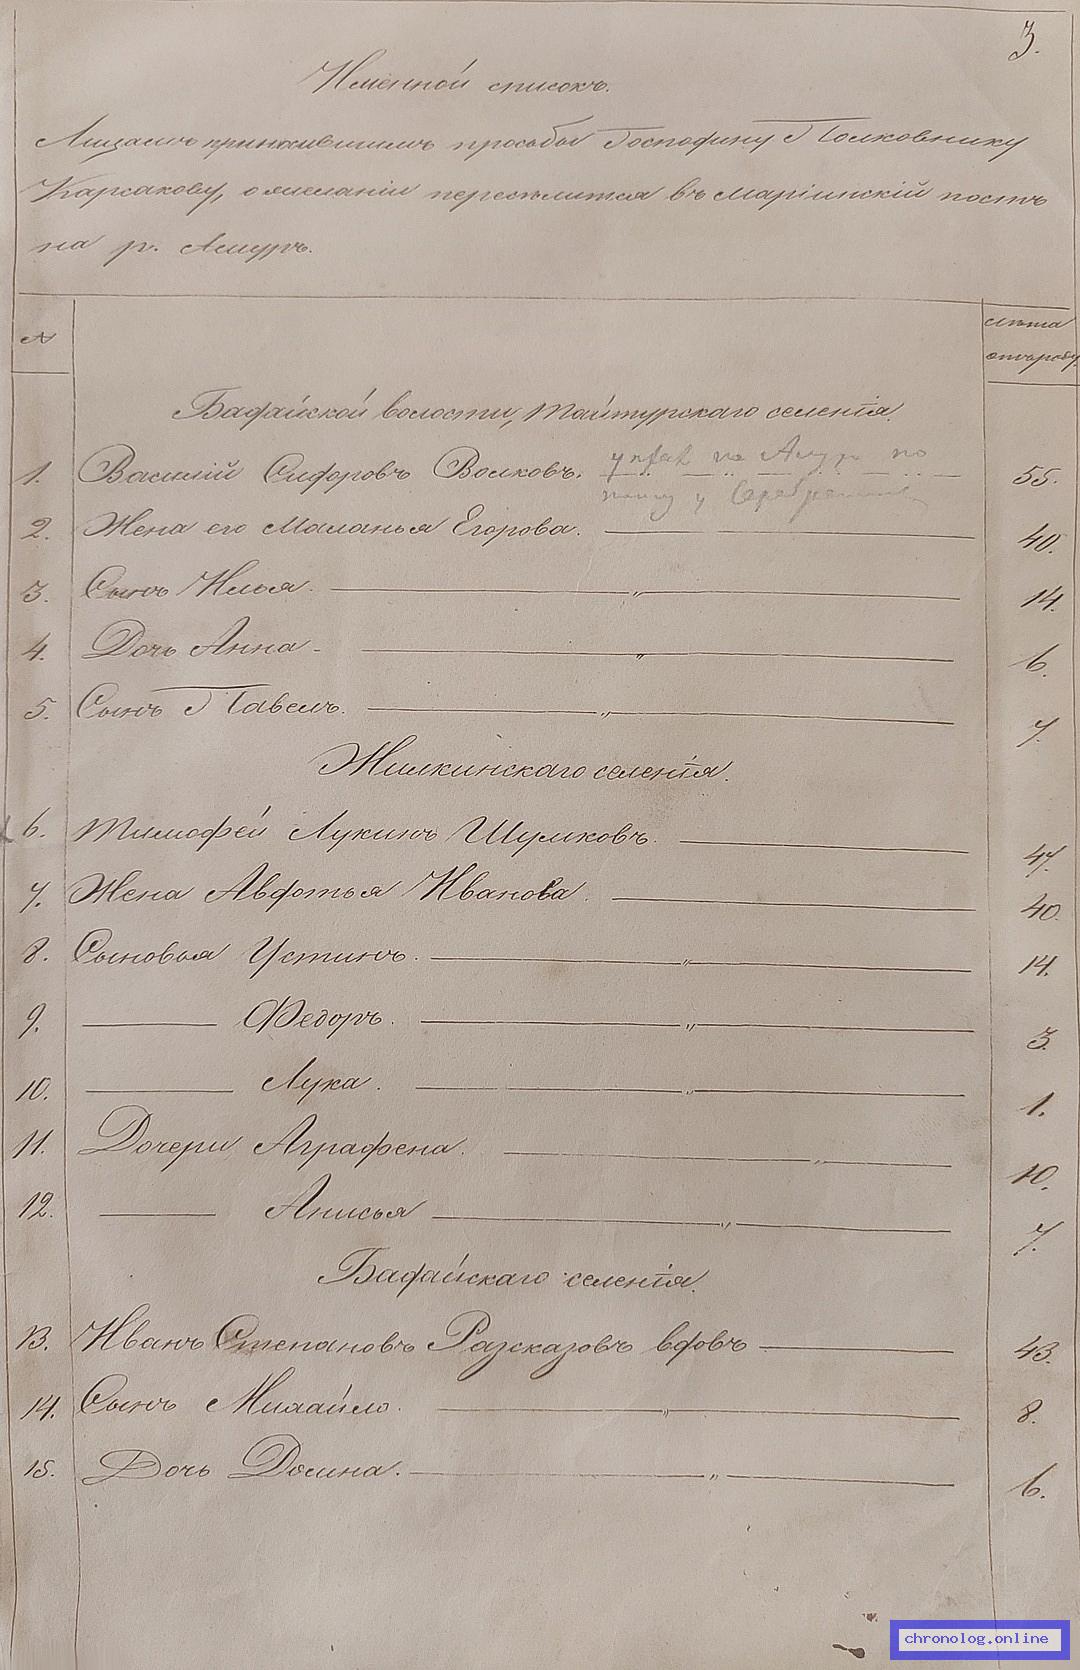 3.
Именной списокъ.
Лицамъ приносившимъ прозьбы Господину Полковнику
Карсакову, о желаніи переселится въ Маріинскій постъ
на р. Амуръ.
№
лѣта
отъ роду
Бадайской волости, Тайтурскаго селенія.
1. Василій Сидоровъ Волковъ. на Амуръ по 55.
2. Жена его Маланья Егорова. 40.
3. Сынъ Илья. „ 14.
4. Дочь Анна - „ 6.
5. Сынъ Павелъ. „ 7.
Жилкинскаго селенія.
6. Тимофей Лукинъ Шумковъ. 47.
7. Жена Авдотья Иванова. 40.
8. Сыновья Устинъ. „ 14.
9. Федоръ. „ 3.
10. Лука. „ 1.
11. Дочери Аграфена. „ 10.
12. Анисья „ 7.
Бадайскаго селенія.
13. Иванъ Степановъ Разсказовъ вдовъ 43.
14. Сынъ Михайло. „ 8.
15. Дочь Домна. „ 6.
chronolog.online